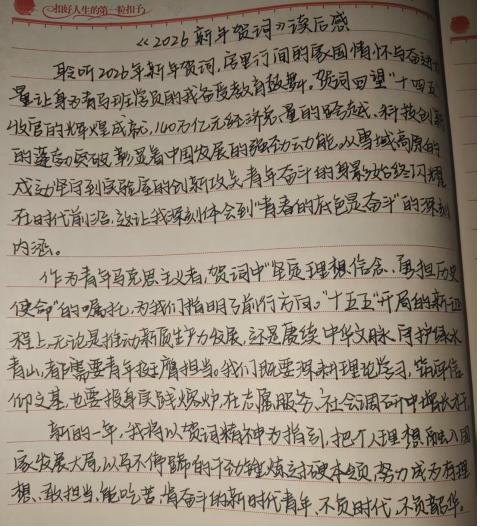 扣好人生的第一粒扣子
《2026新年贺词》读后感
聆听2026年新年贺词,字里行间的家国情怀与奋进力
量让身为青马班学员的我备受教育鼓舞。贺词回望“十四五”
收官的辉煌成就,140万亿元经济总量的跨越、科技创新
的蓬勃突破,彰显着中国发展的强劲动能。从雪域高原的
戍边坚守到实验室的创新攻关,青年奋斗的身影始终闪耀
在时代前沿,这让我深刻体会到“青春的底色是奋斗”的深刻
内涵。
作为青年马克思主义者,贺词中“坚定理想信念、勇担历史
使命”的嘱托,为我们指明了前行方向。“十五五”开局的新征
程上,无论是推动新质生产力发展,还是赓续中华文脉、守护绿水
青山,都需要青年挺膺担当。我们既要深耕理论学习,筑牢信
仰之基,也要投身实践熔炉,在志愿服务、社会调研中增长才干。
新的一年,我将以贺词精神为指引,把个人理想融入国
家发展大局,以马不停蹄的干劲锤炼过硬本领,努力成为有理
想、敢担当、能吃苦、肯奋斗的新时代青年,不负时代,不负韶华。